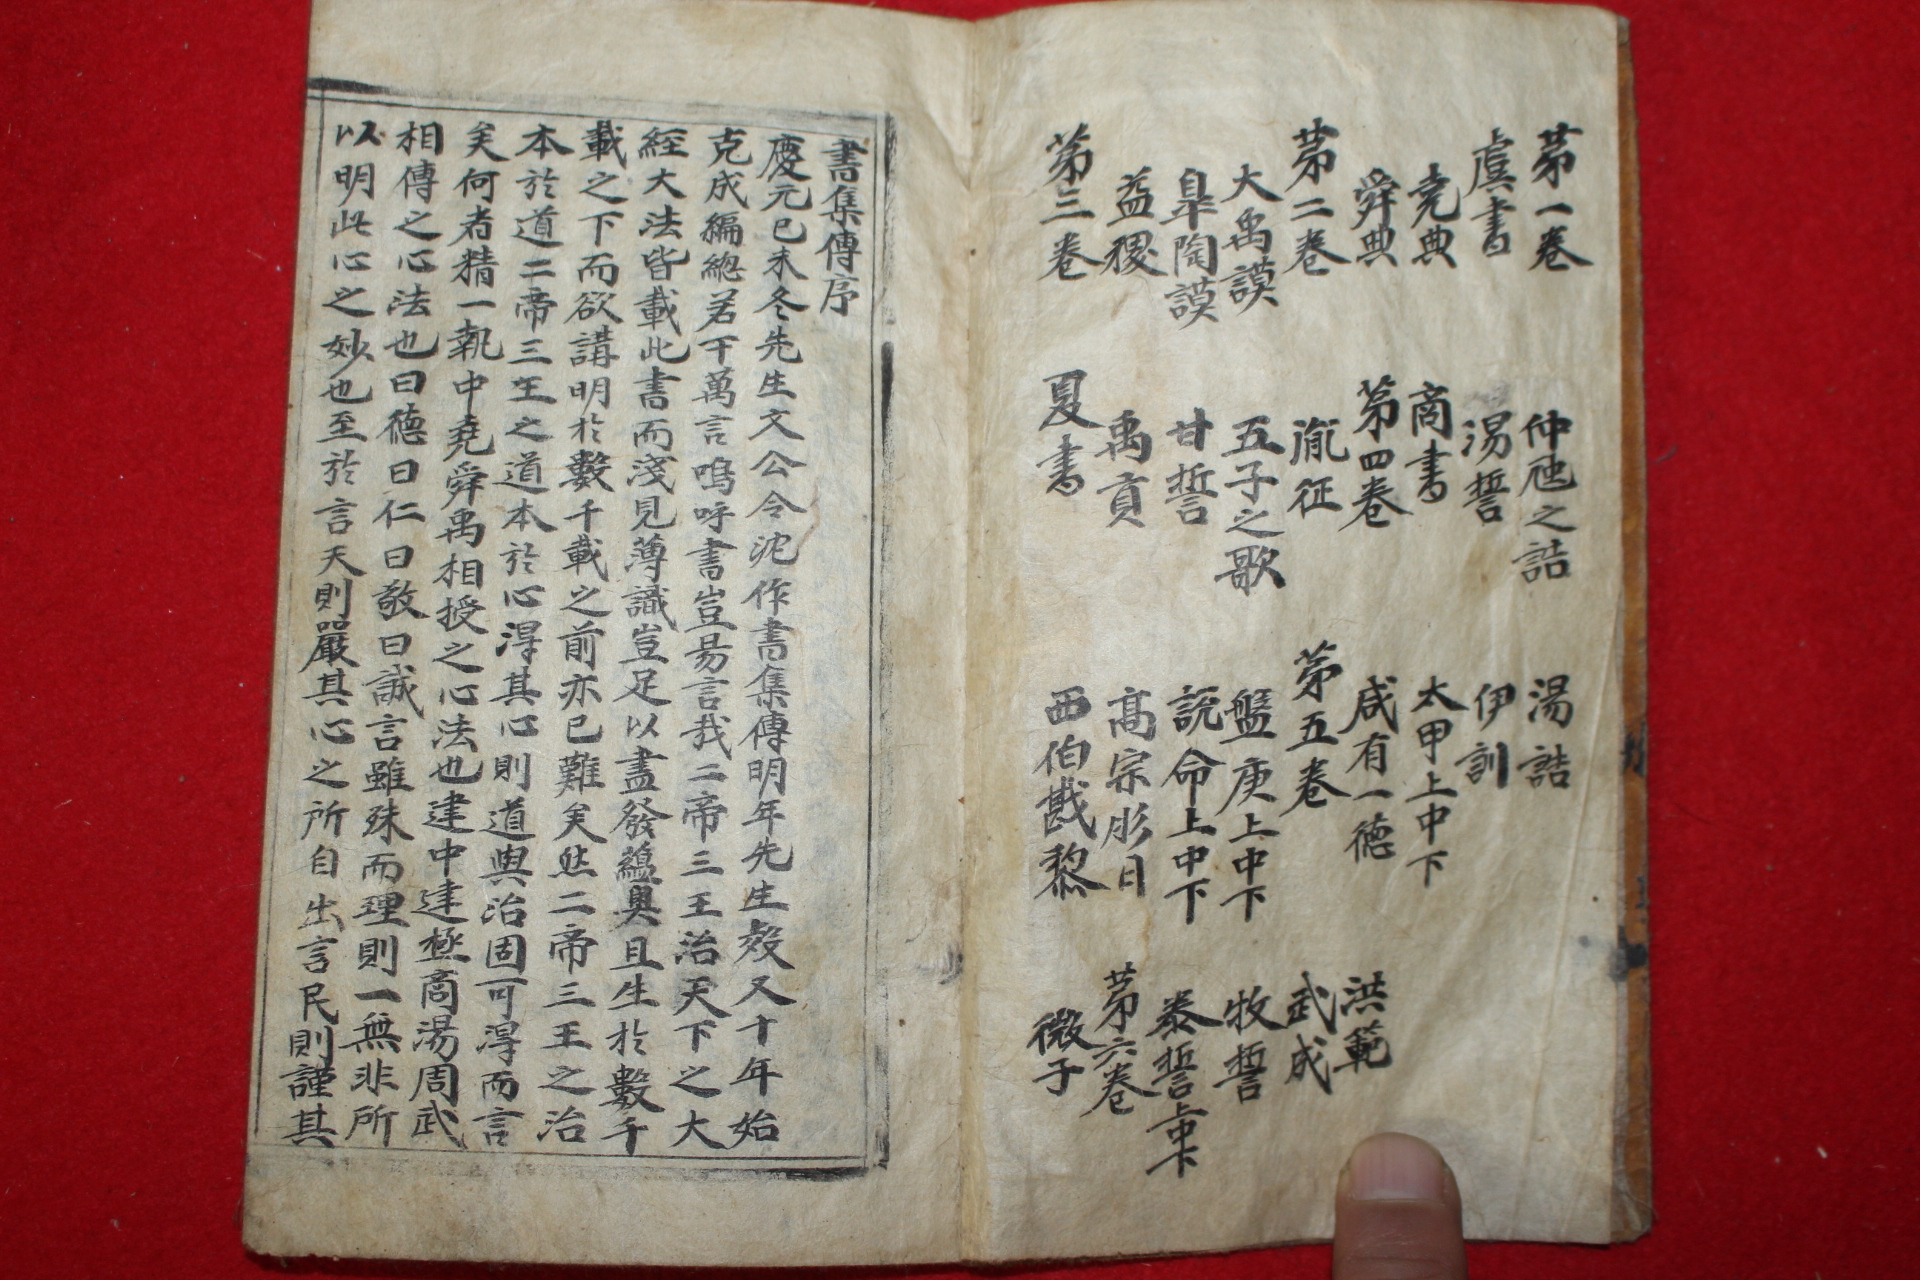 苐一卷
虞書
堯典
舜典
苐二卷
大禹謨
皐陶謨
益稷
苐三卷
夏書
禹貢
甘誓
五子之歌
胤征
苐四卷
商書
湯誓
仲虺之誥
湯誥
伊訓
太甲上中下
咸有一德
苐五卷
盤庚上中下
說命上中下
髙宗肜日
西伯戡黎
微子
苐六卷
泰誓上中下
牧誓
武成
洪範
書集傳序
慶元已未冬先生文公令沈作書集傳明年先生歿又十年始
克成編緫若干萬言嗚呼書豈易言哉二帝三王治天下之大
經大法皆載此書而淺見薄識豈足以盡發蘊奧且生於數千
載之下而欲講明於數千載之前亦已難矣然二帝三王之治
本於道二帝三王之道本於心淂其心則道與治固可淂而言
矣何者精一執中堯舜禹相授之心法也建中建極商湯周武
相傳之心法也曰德曰仁曰敬曰誠言雖殊而理則一無非所
以明此心之妙也至於言天則嚴其心之所自出言民則謹其